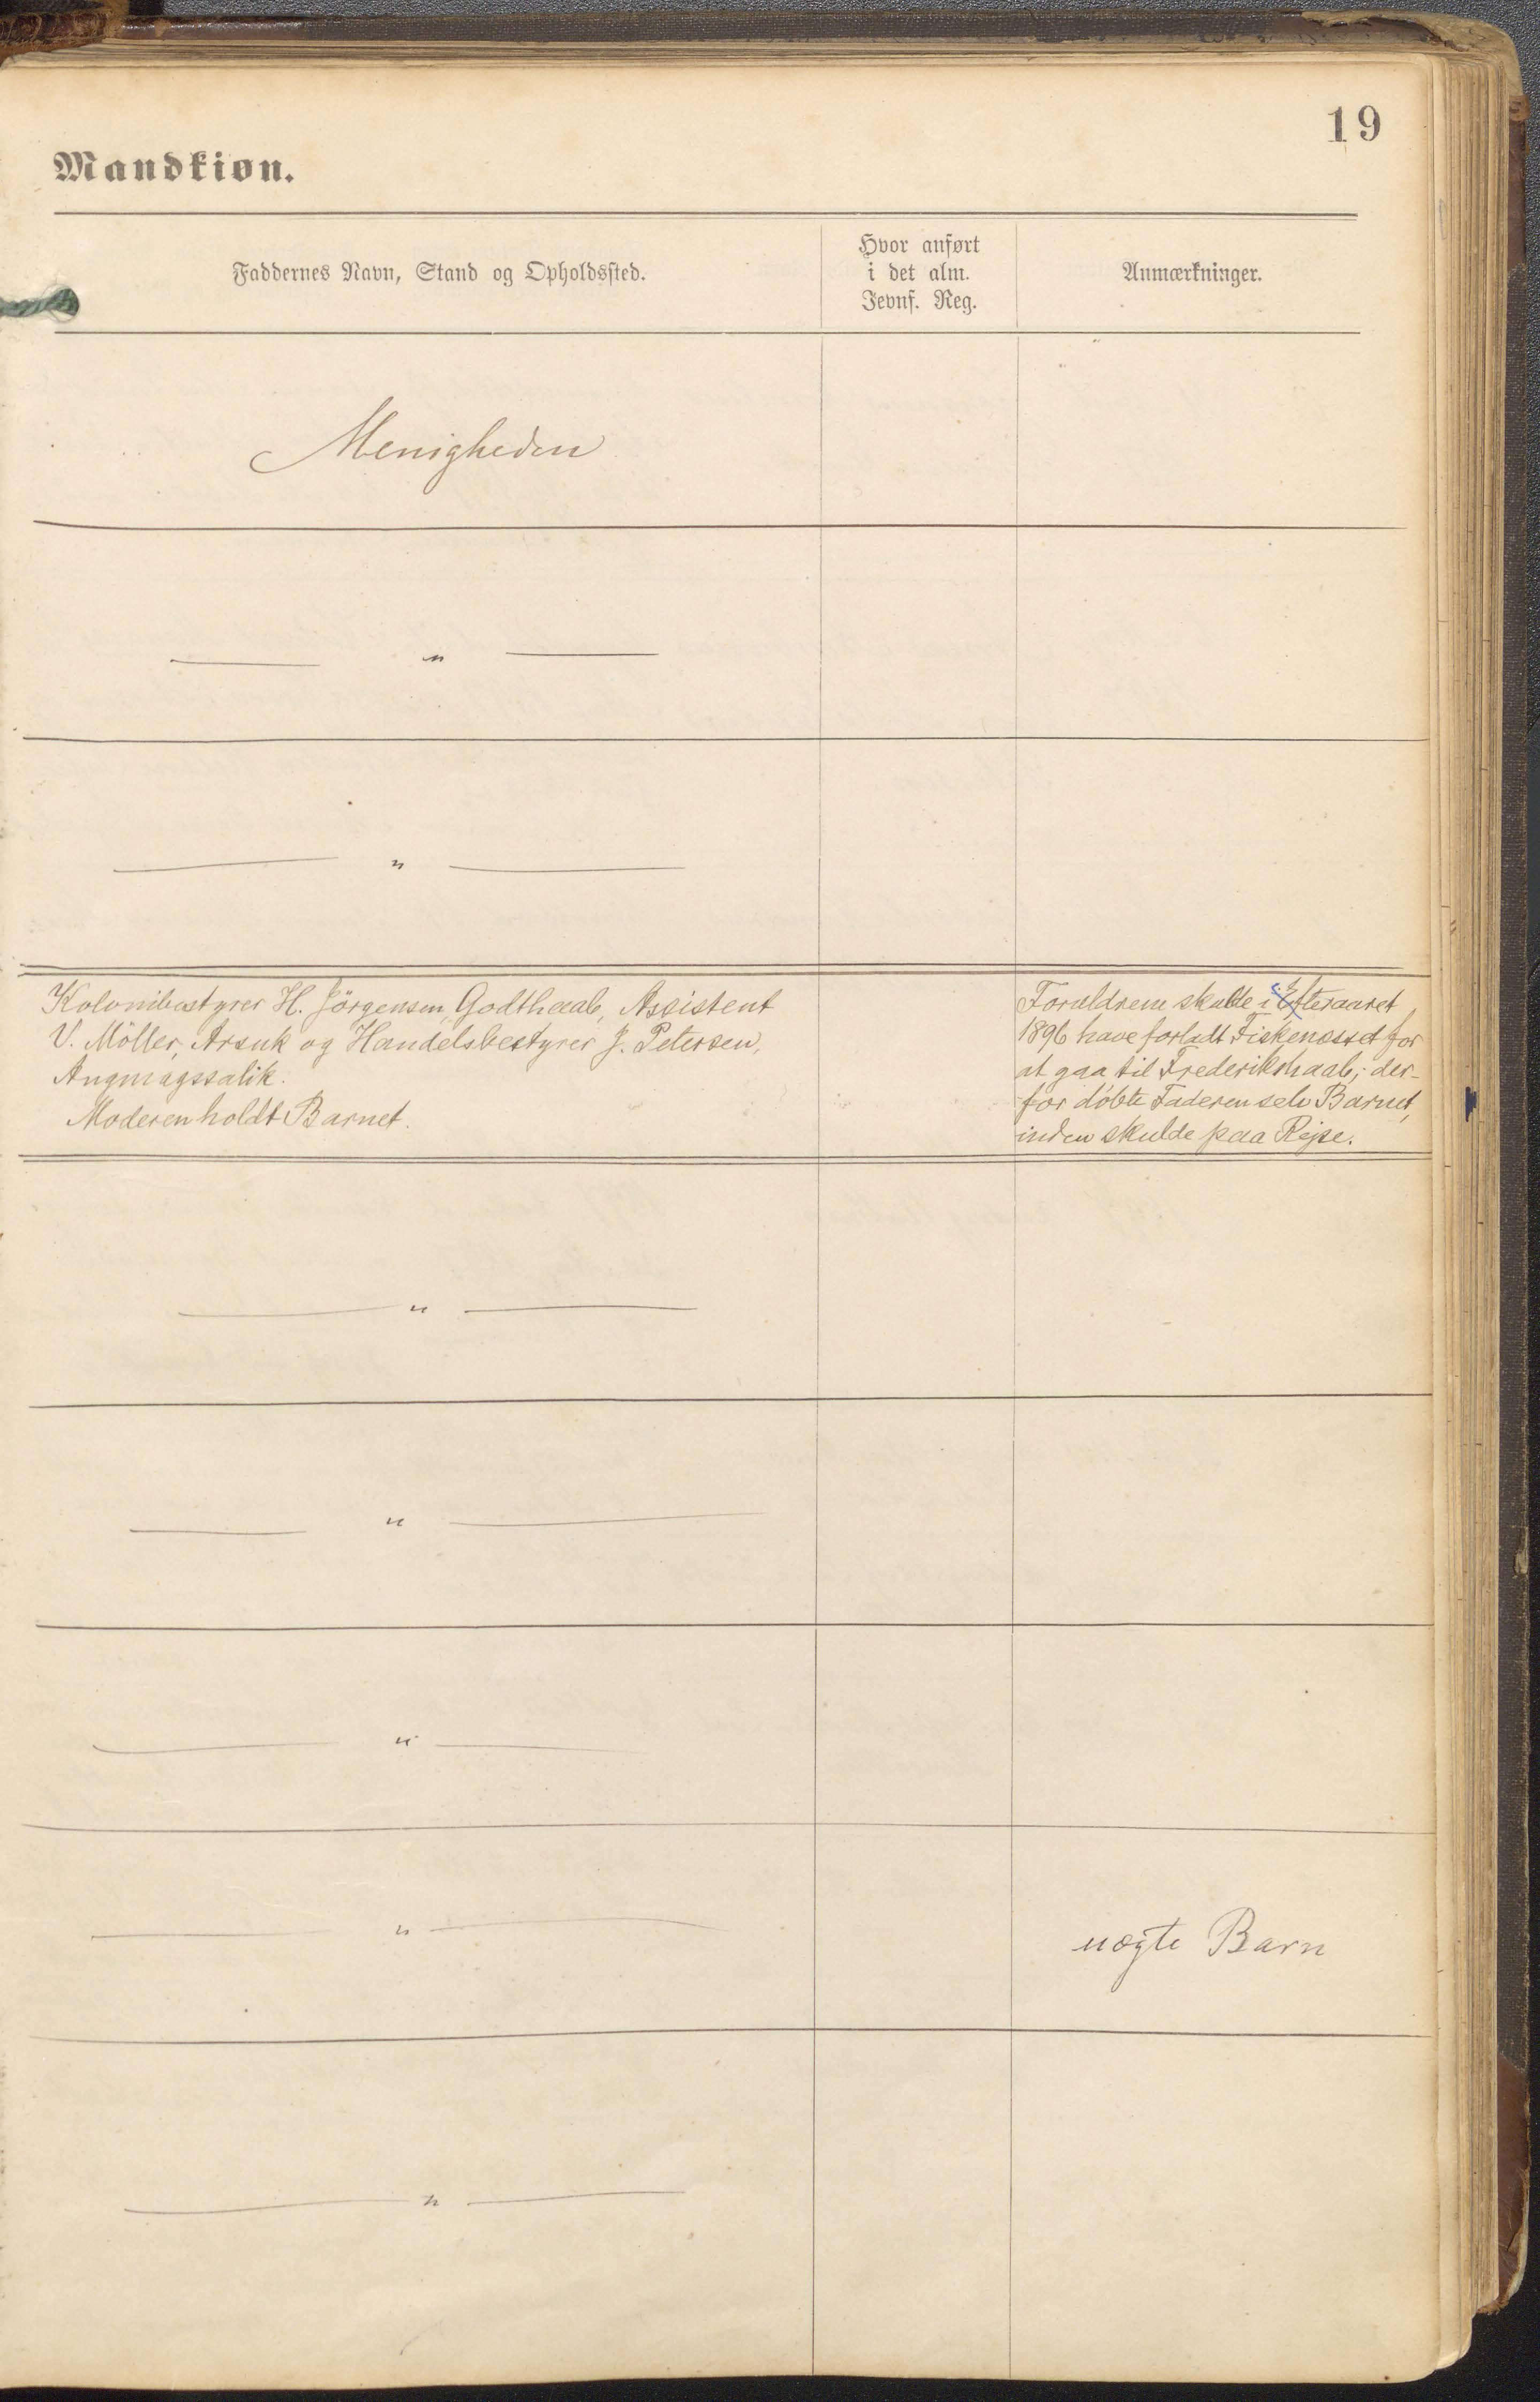 19
Mandkiøn.
Faddernes Navn, Stand og Opholdssted.
Hvor anført
i det alm.
Jevnf. Reg.
Anmærkninger.
Menigheden
— " —
— " —
Kolonibestyrer H. Jörgensen, Godthaab, Assistent
V. Möller, Arsuk og Handelsbestyrer J. Petersen,
Angmagssalik.
Moderen holdt Barnet.
Forældrene skulde i Efteraaret
1896 have forladt Fiskenæsset for
at gaa til Frederikshaab; der-
for döbte Faderen selv Barnet,
inden skulde paa Rejse.
— " —
— " —
— " —
— " —
uægte Barn
— " —